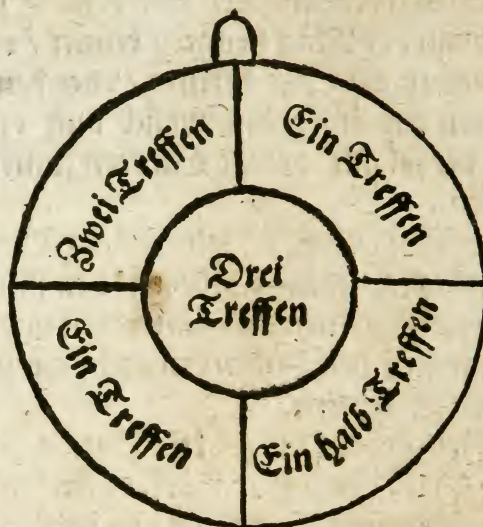 Zwei Treffen
Ein Treffen
Drei
Treffen
Ein Treffen
Ein halb Treffen